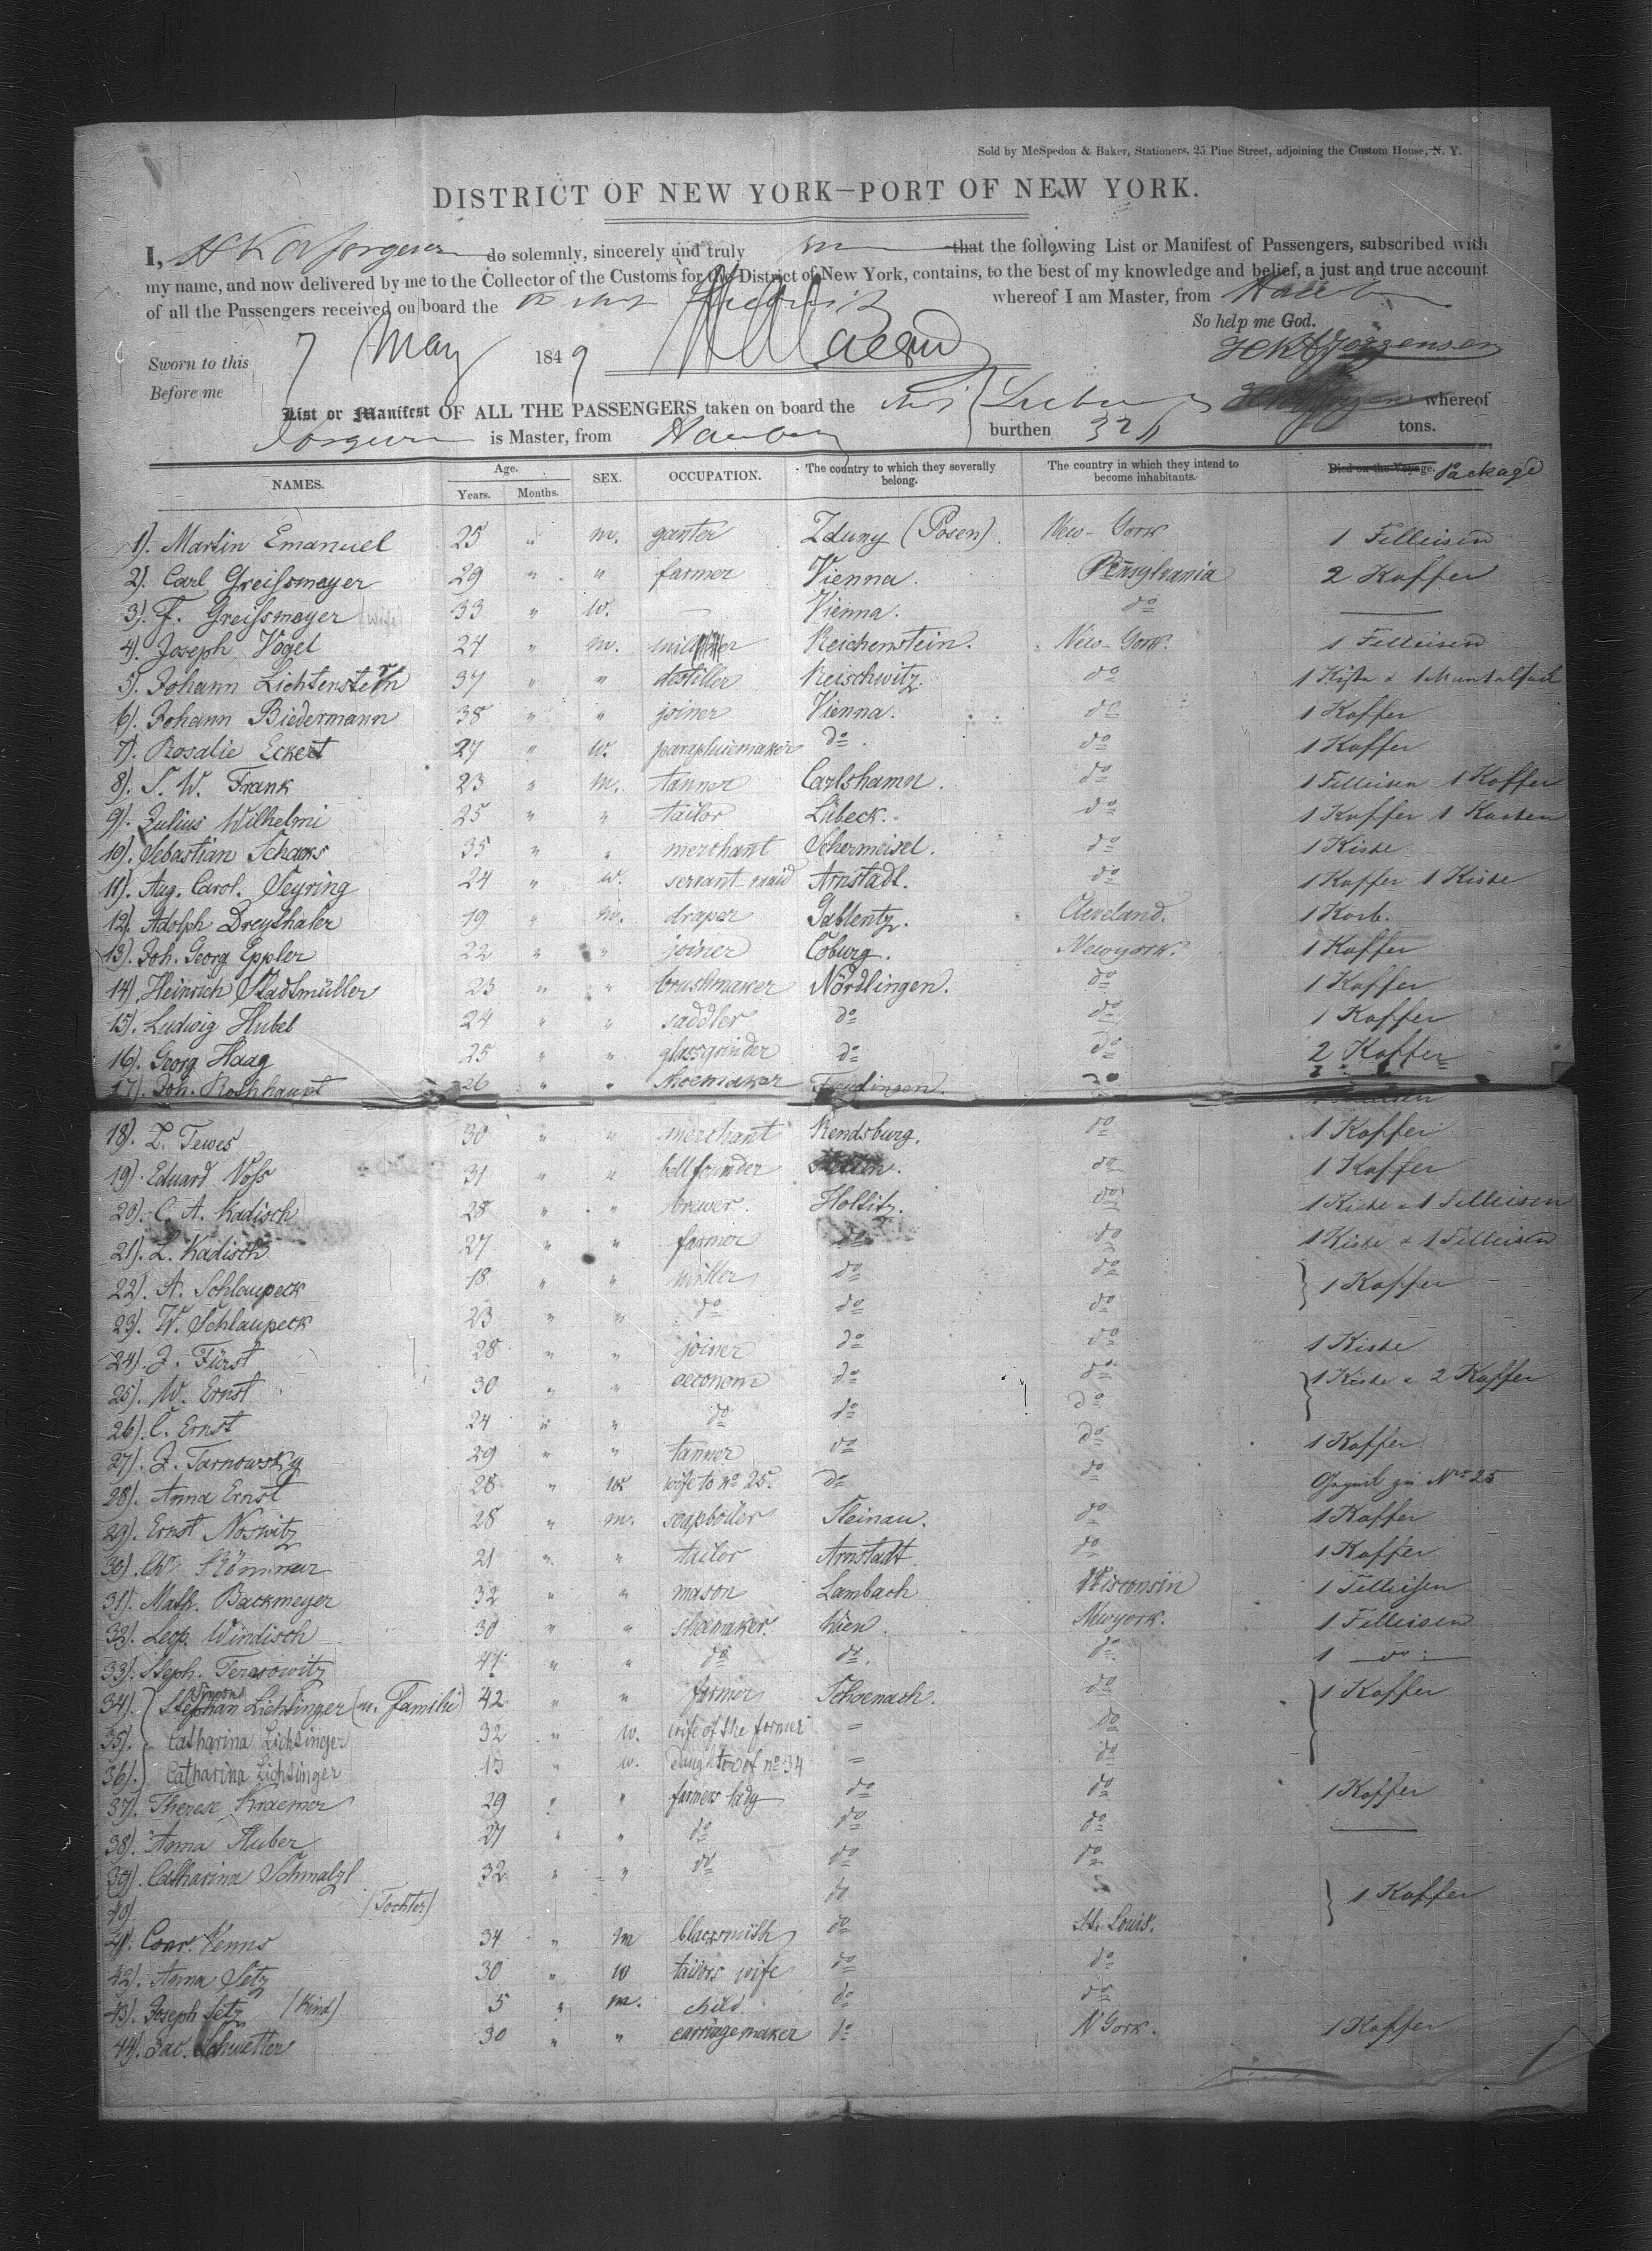 Sold by McSpedon & Baker, Stationers, 25 Pine Street, adjoining the Custom House, N. Y.
DISTRICT OF NEW YORK—PORT OF NEW YORK.
I, do solemnly, sincerely and truly that the following List or Manifest of Passengers, subscribed with
my name, and now delivered by me to the Collector of the Customs for the District of New York, contains, to the best of my knowledge and belief, a just and true account
of all the Passengers received on board the whereof I am Master, from
So help me God.
Sworn to this 7 May 1849
Before me
List or Manifest OF ALL THE PASSENGERS taken on board the whereof
is Master, from burthen tons.
NAMES. Age. Years. Months. SEX. OCCUPATION. The country to which they severally belong. The country in which they intend to become inhabitants. Died on the Voyage. Package
1). Martin Emanuel 25 " m. ganter Zduny (Posen). New-York 1 Felleisen
2). Carl Greissmayer 29 " " farmer Vienna. Pensylvania 2 Koffer
3). F. Greissmayer (wife) 33 " w. — Vienna. do —
4). Joseph Vogel 24 " m. Reichenstein. New-York. 1 Felleisen
5). Johann Lichtenstern 37 " " destiller Reischwitz. do 1 Kiste &
6). Johann Biedermann 38 " " joiner Vienna. do 1 Koffer
7). Rosalie Eckert 27 " w. parapluiemaker do. do 1 Koffer
8). S. W. Frank 23 " m. tanner Carlshamn. do 1 Felleisen 1 Koffer
9). Julius Wilhelmi 25 " " tailor Lübeck. do 1 Koffer 1 Kasten
10). Sebastian Schaers 35 " " merchant Schermeisel. do 1 Kiste
11). Aug. Carol. Seyring 24 " w. servant-maid Arnstadt. do 1 Koffer 1 Kiste
12). Adolph Dreythaler 19 " m. draper Gablentz. Cleveland. 1 Korb.
13). Joh. Georg Eppler 22 " " joiner Coburg. Newyork. 1 Koffer
14). Heinrich Stadtmüller 23 " " brushmaker Nördlingen. do 1 Koffer
15). Ludwig Hubel 24 " " saddler do do 1 Koffer
16). Georg Haag 25 " " glassgrinder do do 2 Koffer
17). Joh. Rothhaupt 26 " " shoemaker do
18). L. Tewes 30 " " merchant Rendsburg. do 1 Koffer
19). Eduard Voss 31 " " bellfounder do 1 Koffer
20). C. A. Kadisch 28 " " brewer. Hollitz. do 1 Kiste & 1 Felleisen
21). L. Kadisch 27 " " farmer do do 1 Kiste & 1 Felleisen
22). A. Schlaupeck 18 " " miller do do 1 Koffer
23). W. Schlaupeck 23 " " do do do
24). J. Fürst 28 " " joiner do do 1 Kiste
25). W. Ernst 30 " " oeconom do do 1 Kiste & 2 Koffer
26). C. Ernst 24 " " do do do
27). J. Tarnowsky 29 " " tanner do do 1 Koffer
28). Anna Ernst 28 " w wife to no 25. do do No 25
29). Ernst Noswitz 28 " m. soapboiler Steinau. do 1 Koffer
30). Chr. 21 " " tailor Arnstadt. do 1 Koffer
31). Math. Backmeyer 32 " " mason Lambach Wisconsin 1 Felleisen
32). Leop. Windisch 30 " " shoemaker. Wien Newyork. 1 Felleisen
33). Steph. Terasowitz 47 " " do do. do 1 do
34). Stephan Simons Lichtinger (m. Familie) 42 " " farmer Schoenach. do 1 Koffer
35). Catharina Lichtinger 32 " w. wife of the former = do
36). Catharina Lichtinger 13 " w. daughter of no 34 = do
37). Therese Kraemer 29 " " farmers lady do do 1 Koffer
38). Anna Huber 27 " " do do do —
39). Catharina Schmalzl 32 " " do do do 1 Koffer
40) (Tochter) do
41. Conr. Venns 34 " m blacksmith do St. Louis.
42). Anna Setz 30 " w tailors wife do do
43). Joseph Setz (Kind) 5 " m. child. do do
44). Jac. Schwetter 30 " " carriagemaker do N York. 1 Koffer